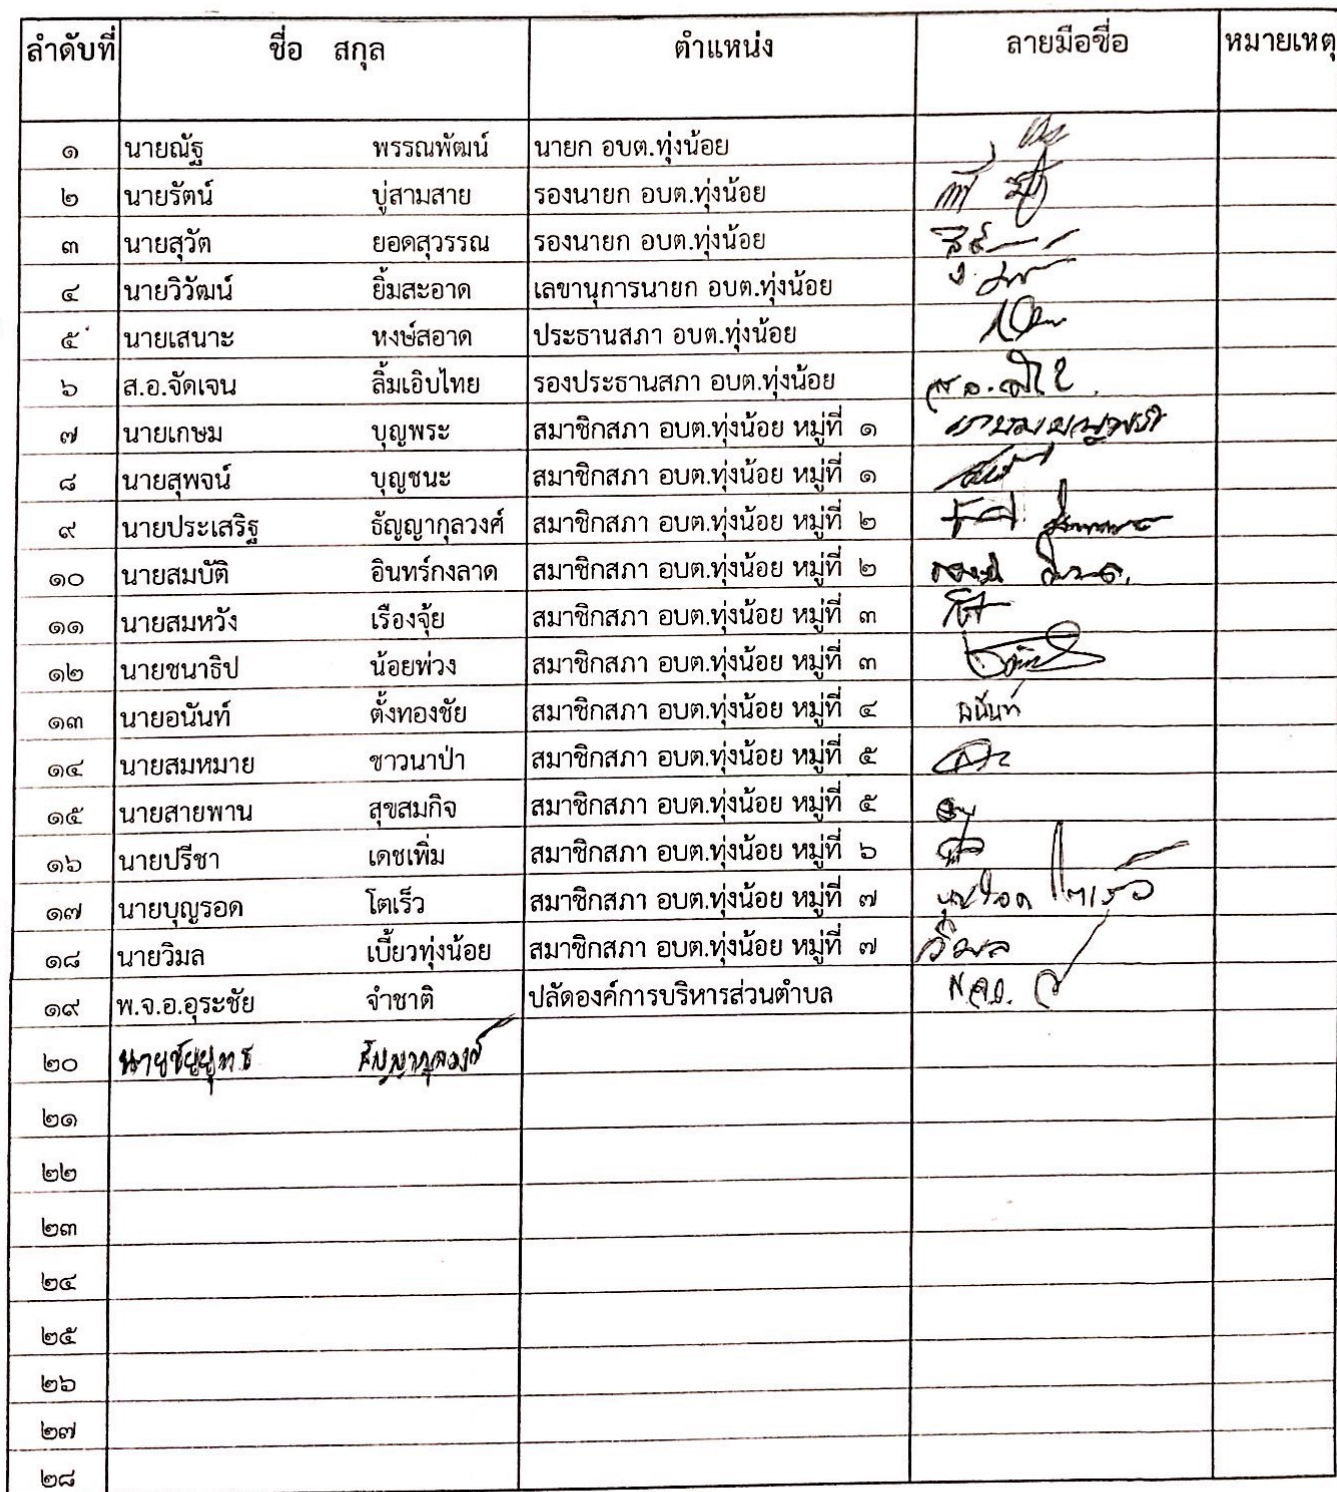 ลำดับที่ ชื่อ สกุล ตำแหน่ง ลายมือชื่อ หมายเหตุ
๑ นายณัฐ พรรณพัฒน์ นายก อบต.ทุ่งน้อย
๒ นายรัตน์ บู่สามสาย รองนายก อบต.ทุ่งน้อย
๓ นายสุวัต ยอดสุวรรณ รองนายก อบต.ทุ่งน้อย
๔ นายวิวัฒน์ ยิ้มสะอาด เลขานุการนายก อบต.ทุ่งน้อย
๕ นายเสนาะ หงษ์สอาด ประธานสภา อบต.ทุ่งน้อย
๖ ส.อ.จัดเจน ลิ้มเอิบไทย รองประธานสภา อบต.ทุ่งน้อย
๗ นายเกษม บุญพระ สมาชิกสภา อบต.ทุ่งน้อย หมู่ที่ ๑
๘ นายสุพจน์ บุญชนะ สมาชิกสภา อบต.ทุ่งน้อย หมู่ที่ ๑
๙ นายประเสริฐ ธัญญากุลวงศ์ สมาชิกสภา อบต.ทุ่งน้อย หมู่ที่ ๒
๑๐ นายสมบัติ อินทร์กงลาด สมาชิกสภา อบต.ทุ่งน้อย หมู่ที่ ๒
๑๑ นายสมหวัง เรืองจุ้ย สมาชิกสภา อบต.ทุ่งน้อย หมู่ที่ ๓
๑๒ นายชนาธิป น้อยพ่วง สมาชิกสภา อบต.ทุ่งน้อย หมู่ที่ ๓
๑๓ นายอนันท์ ตั้งทองชัย สมาชิกสภา อบต.ทุ่งน้อย หมู่ที่ ๔ อนันท์
๑๔ นายสมหมาย ชาวนาป่า สมาชิกสภา อบต.ทุ่งน้อย หมู่ที่ ๕
๑๕ นายสายพาน สุขสมกิจ สมาชิกสภา อบต.ทุ่งน้อย หมู่ที่ ๕
๑๖ นายปรีชา เดชเพิ่ม สมาชิกสภา อบต.ทุ่งน้อย หมู่ที่ ๖
๑๗ นายบุญรอด โตเร็ว สมาชิกสภา อบต.ทุ่งน้อย หมู่ที่ ๗ บุญรอด โตเร็ว
๑๘ นายวิมล เบี้ยวทุ่งน้อย สมาชิกสภา อบต.ทุ่งน้อย หมู่ที่ ๗ วิมล
๑๙ พ.จ.อ.อุระชัย จำชาติ ปลัดองค์การบริหารส่วนตำบล พ.จ.อ.
๒๐ นายชัยยุทธ ธัญญากุลวงศ์
๒๑
๒๒
๒๓
๒๔
๒๕
๒๖
๒๗
๒๘